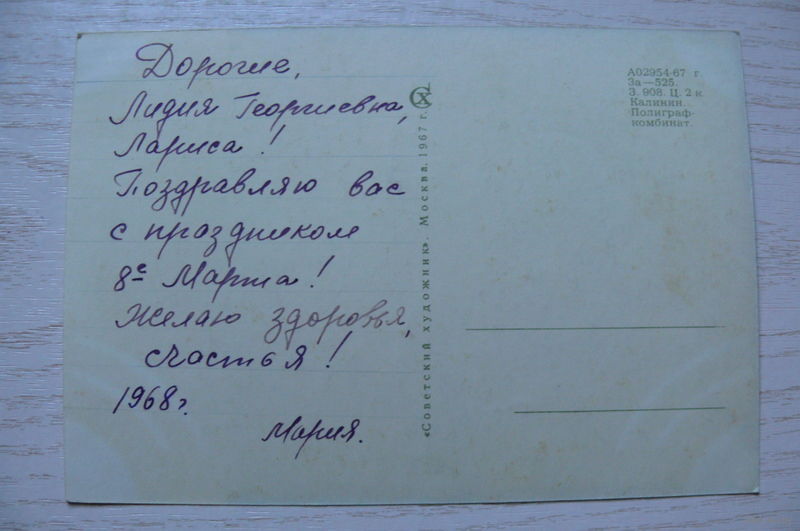 Дорогие,
Лидия Георгиевна,
Лариса!
Поздравляю вас
с праздником
8е Марта!
Желаю здоровья,
счастья!
1968г.
Мария.
«Советский художник». Москва. 1967 г.
СХ
А02954-67 г.
За—525.
З. 908. Ц. 2 к.
Калинин.
Полиграф-
комбинат.